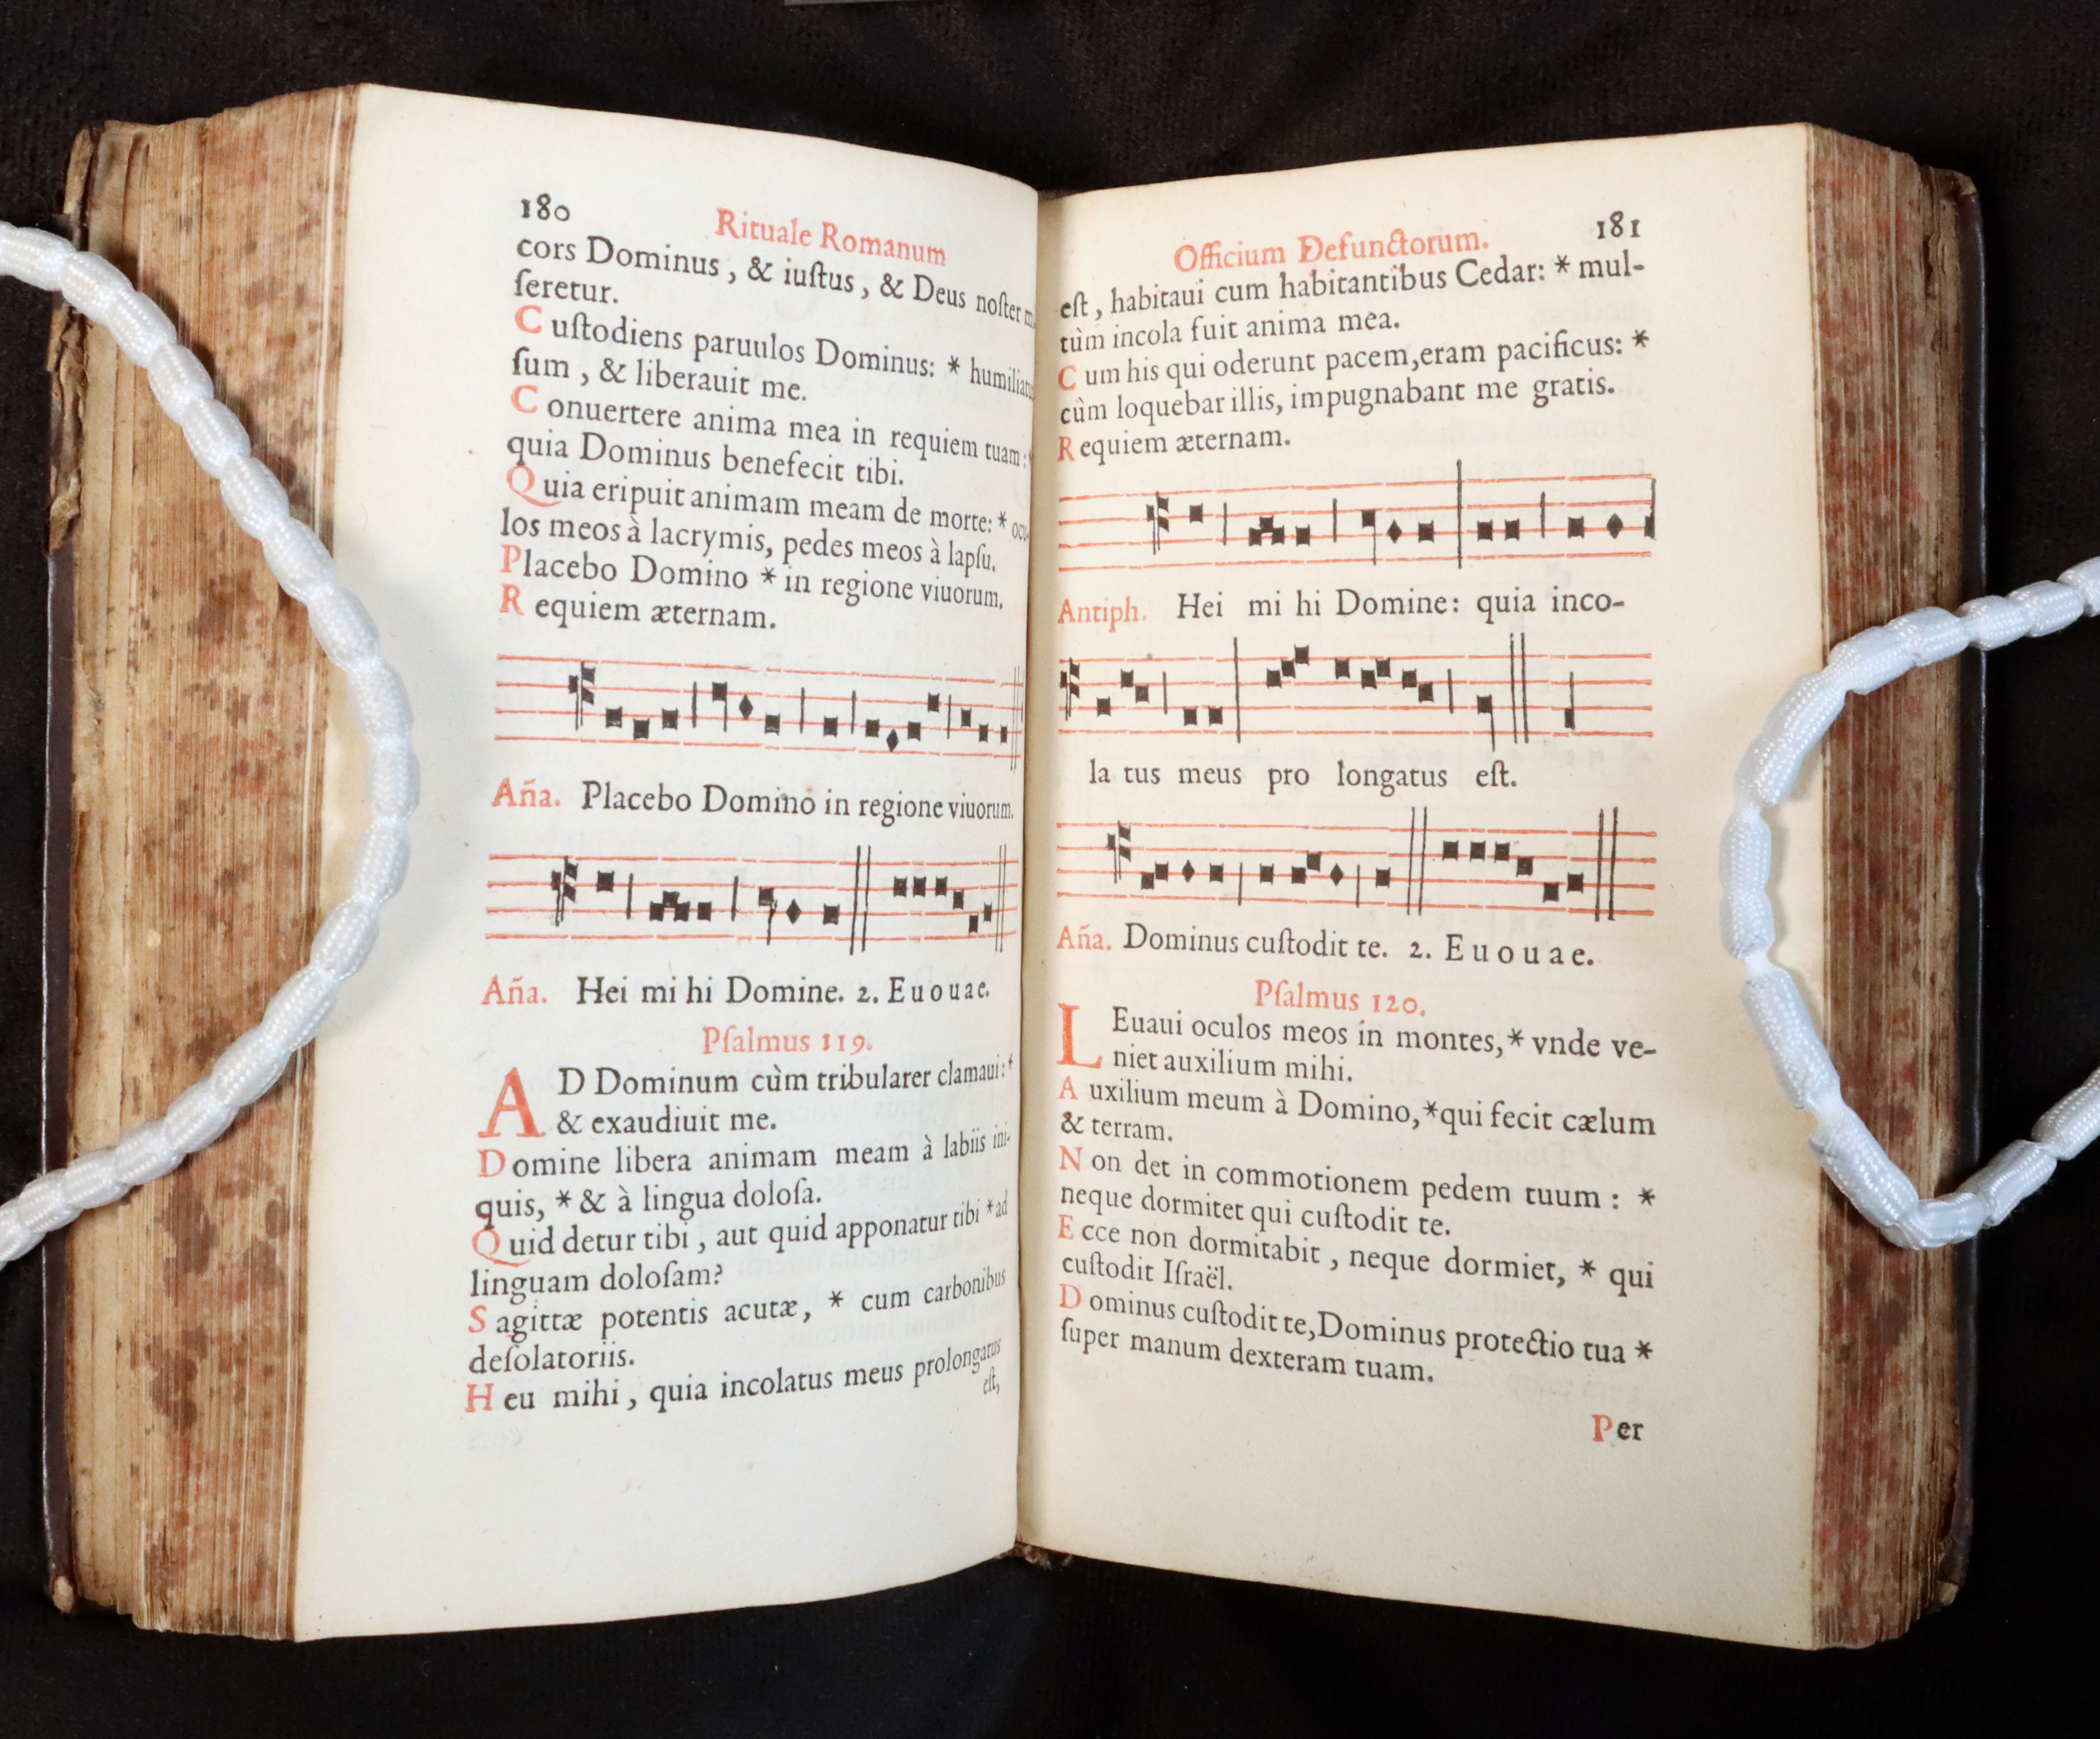 180
Rituale Romanum
cors Dominus, & iuſtus, & Deus noſter
ſeretur.
Cuſtodiens paruulos Dominus: *
ſum, & liberauit me.
Conuertere anima mea in requiem tuam:
quia Dominus benefecit tibi.
Quia eripuit animam meam de morte: * ocu-
los meos à lacrymis, pedes meos à lapſu.
Placebo Domino * in regione viuorum.
Requiem æternam.
Aña. Placebo Domino in regione viuorum.
Aña. Hei mi hi Domine. 2. E u o u a e.
Pſalmus 119.
AD Dominum cùm tribularer clamaui: *
& exaudiuit me.
Domine libera animam meam à labiis ini-
quis, * & à lingua doloſa.
Quid detur tibi, aut quid apponatur tibi * ad
linguam doloſam?
Sagittæ potentis acutæ, * cum carbonibus
deſolatoriis.
Heu mihi, quia incolatus meus prolongatus
eſt,
Officium Defunctorum.
181
eſt, habitaui cum habitantibus Cedar: * mul-
tùm incola fuit anima mea.
Cum his qui oderunt pacem, eram pacificus: *
cùm loquebar illis, impugnabant me gratis.
Requiem æternam.
Antiph. Hei mi hi Domine: quia inco-
la tus meus pro longatus eſt.
Aña. Dominus cuſtodit te. 2. E u o u a e.
Pſalmus 120.
LEuaui oculos meos in montes, * vnde ve-
niet auxilium mihi.
Auxilium meum à Domino, * qui fecit cælum
& terram.
Non det in commotionem pedem tuum: *
neque dormitet qui cuſtodit te.
Ecce non dormitabit, neque dormiet, * qui
cuſtodit Iſraël.
Dominus cuſtodit te, Dominus protectio tua *
ſuper manum dexteram tuam.
Per